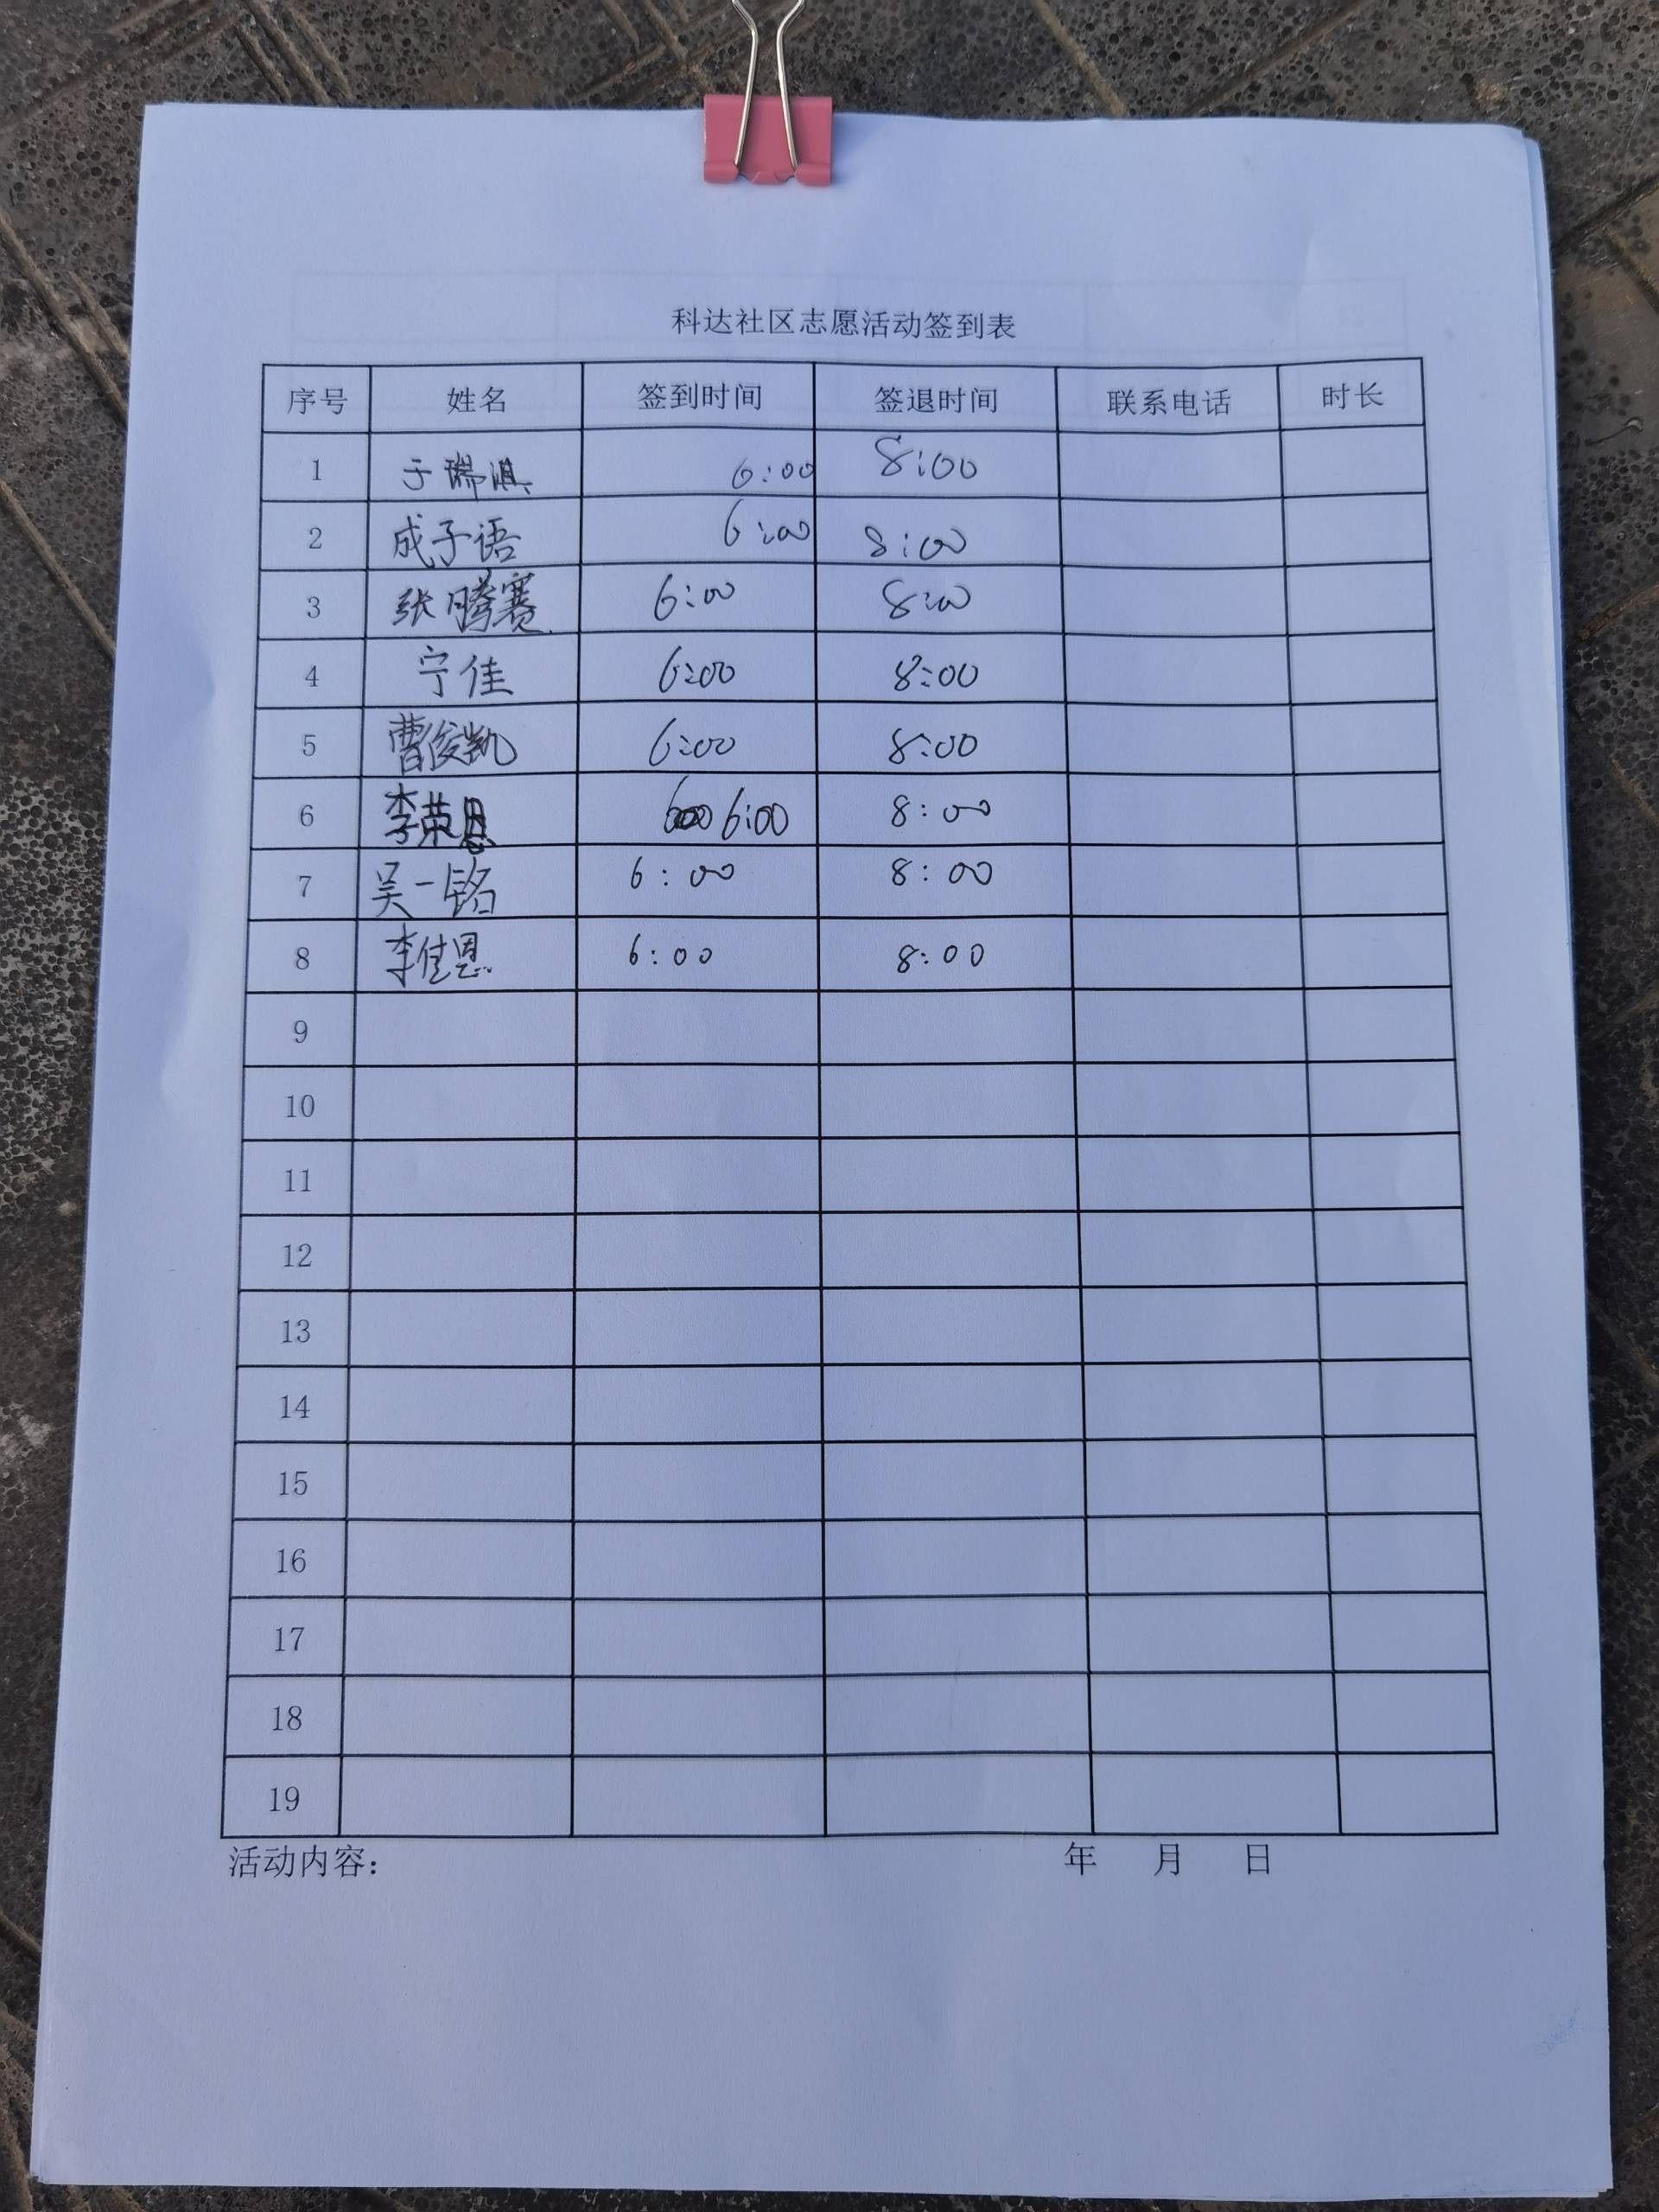 科达社区志愿活动签到表
序号 姓名 签到时间 签退时间 联系电话 时长
1 于瑞淇 6:00 8:00
2 成子语 6:00 8:00
3 张腾赛 6:00 8:00
4 宁佳 6:00 8:00
5 曹俊凯 6:00 8:00
6 李荣恩 6:00 8:00
7 吴一铭 6:00 8:00
8 李佳恩 6:00 8:00
9
10
11
12
13
14
15
16
17
18
19
活动内容： 年 月 日